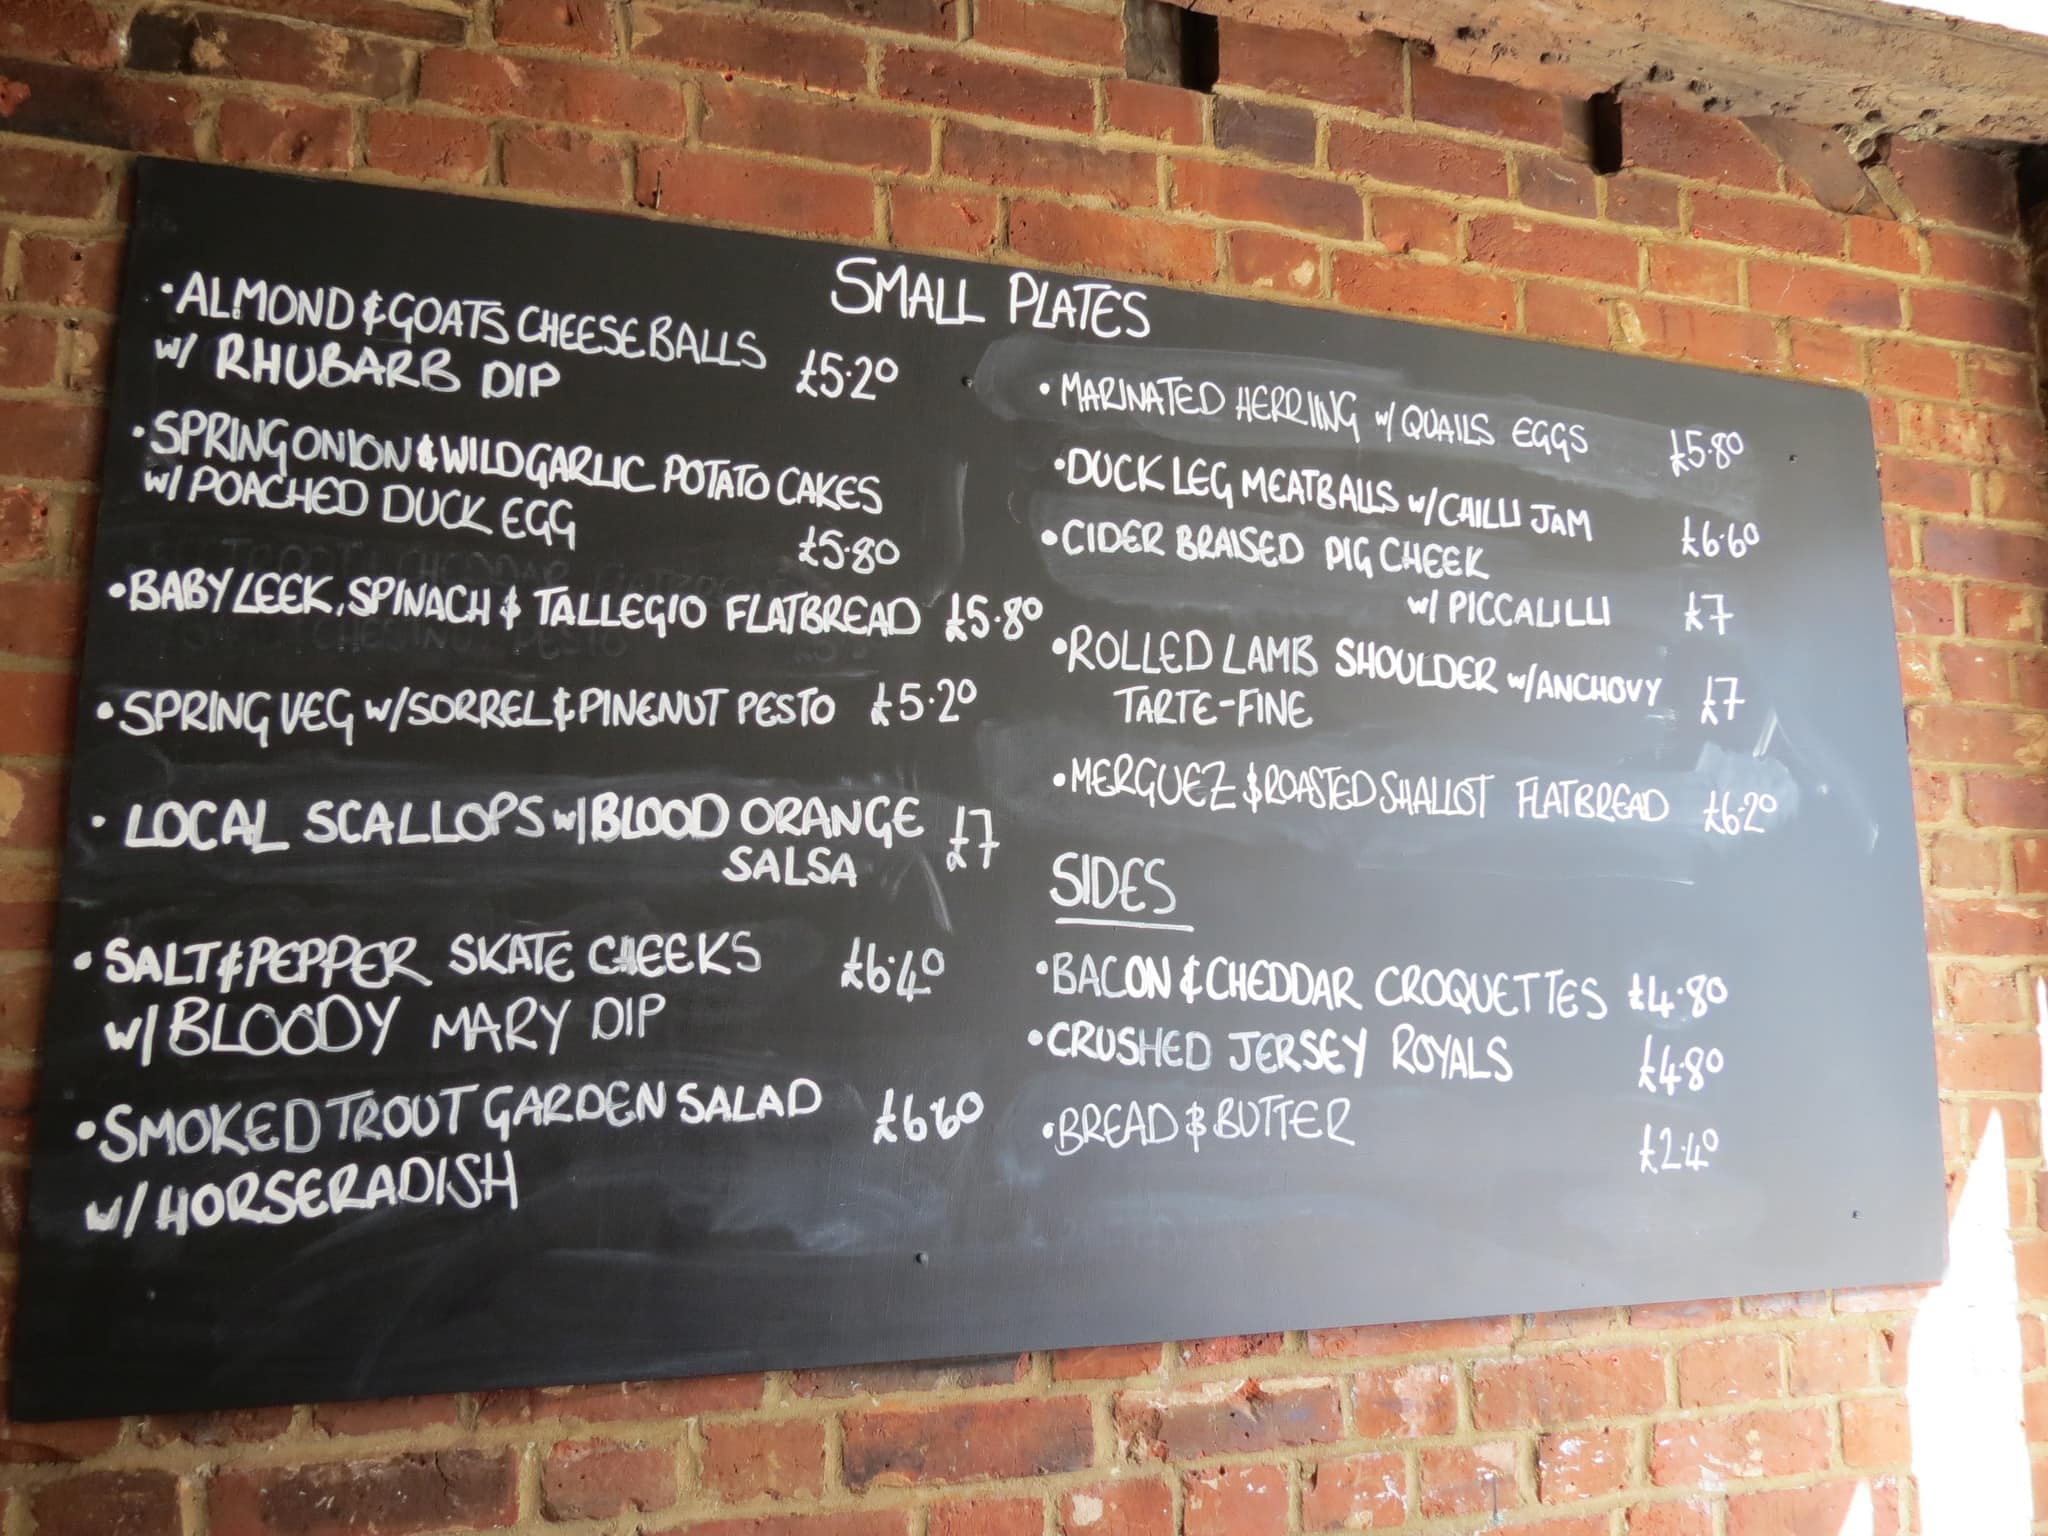 SMALL PLATES
•ALMOND & GOATS CHEESE BALLS
w/ RHUBARB DIP £5.20
•SPRING ONION & WILD GARLIC POTATO CAKES
w/ POACHED DUCK EGG
£5.80
•BABY LEEK, SPINACH & TALLEGIO FLATBREAD £5.80
•SPRING VEG w/ SORREL & PINENUT PESTO £5.20
•LOCAL SCALLOPS w/ BLOOD ORANGE £7
SALSA
•SALT & PEPPER SKATE CHEEKS £6.40
w/ BLOODY MARY DIP
•SMOKED TROUT GARDEN SALAD £6.60
w/ HORSERADISH
•MARINATED HERRIING w/ QUAILS EGGS £5.80
•DUCK LEG MEATBALLS w/ CHILLI JAM £6.60
•CIDER BRAISED PIG CHEEK
w/ PICCALILLI £7
•ROLLED LAMB SHOULDER w/ ANCHOVY £7
TARTE-FINE
•MERGUEZ & ROASTED SHALLOT FLATBREAD £6.20
SIDES
•BACON & CHEDDAR CROQUETTES £4.80
•CRUSHED JERSEY ROYALS £4.80
•BREAD & BUTTER £2.40